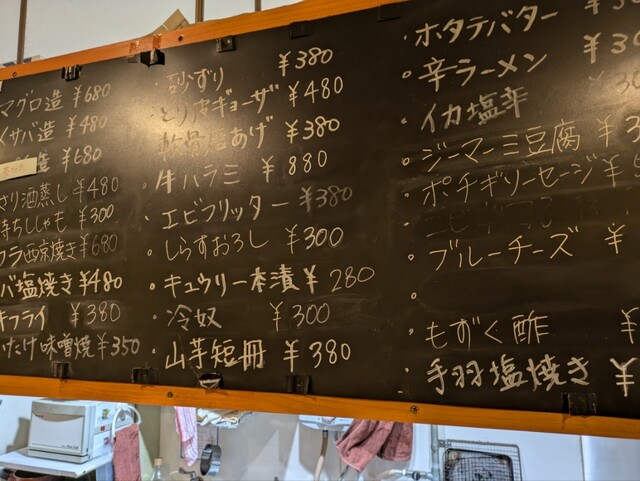 マグロ造 ¥680
メサバ造 ¥480
造 ¥680
さり酒蒸し ¥480
持ちししゃも ¥300
西京焼き ¥680
バ塩焼き ¥480
フライ ¥380
たけ味噌焼 ¥350
・砂ずり ¥380
・とり皮ギョーザ ¥480
・軟骨唐あげ ¥380
・牛ハラミ ¥880
・エビフリッター ¥380
・しらすおろし ¥300
・キュウリ一本漬 ¥280
・冷奴 ¥300
・山芋短冊 ¥380
・ホタテバター
・辛ラーメン ¥
・イカ塩辛
・ジーマーミ豆腐 ¥
・ポチギソーセージ ¥
・ブルーチーズ ¥
・もずく酢 ¥
・手羽塩焼き ¥